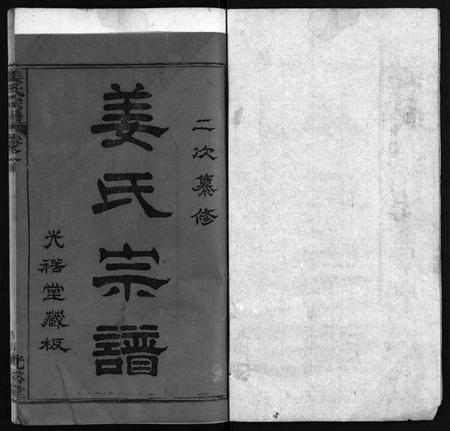 二次纂修
姜氏宗譜
光裕堂藏板
姜氏宗譜
光裕堂